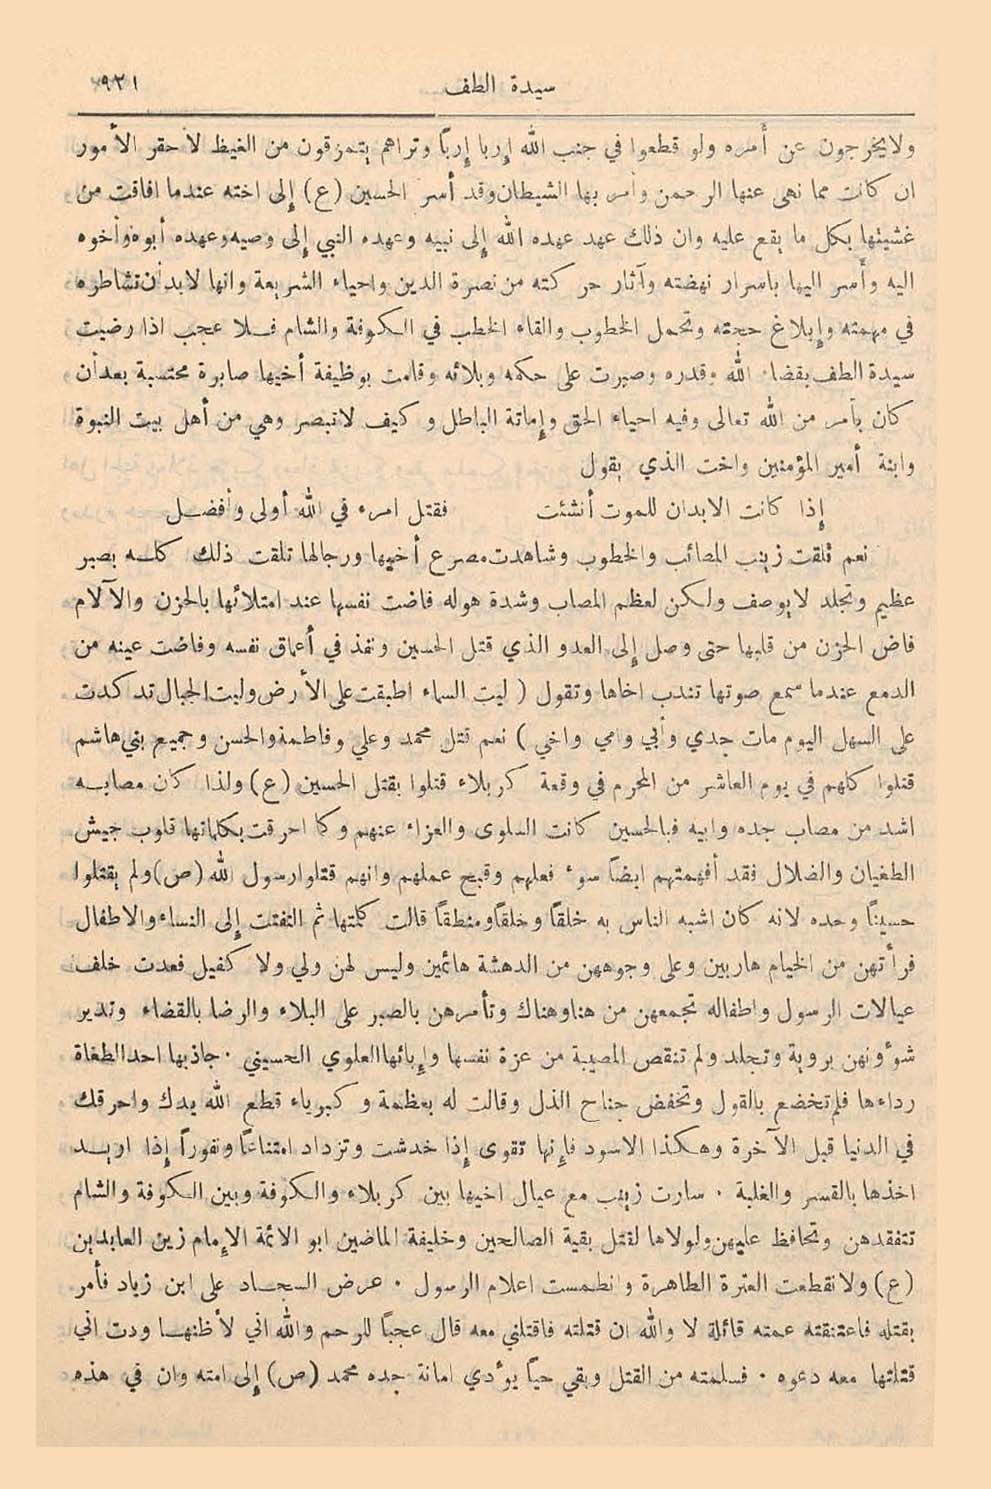 سيدة الطف ٩٢١
ولايخرجون عن أمره ولو قطعوا في جنب الله إربا إرباً وتراهم يتمزقون من الغيظ لأحقر الأمور
ان كانت مما نهى عنها الرحمن وأمر بها الشيطان وقد أسر الحسين (ع) إلى اخته عندما افاقت من
غشيتها بكل ما يقع عليه وان ذلك عهد عهده الله إلى نبيه وعهده النبي إلى وصيه وعهده أبوه وأخوه
اليه وأسر اليها باسرار نهضته وآثار حركته من نصرة الدين واحياء الشريعة وانها لابد أن تشاطره
في مهمته وإبلاغ حجته وتحمل الخطوب والقاء الخطب في الكوفة والشام فلا عجب اذا رضيت
سيدة الطف بقضاء الله وقدره وصبرت على حكمه وبلائه وقامت بوظيفة أخيها صابرة محتسبة بعد أن
كان بأمر من الله تعالى وفيه احياء الحق وإماتة الباطل وكيف لاتبصر وهي من أهل بيت النبوة
وابنة أمير المؤمنين واخت الذي يقول
إذا كانت الابدان للموت أنشئت فقتل امرء في الله أولى وأفضل
نعم تلقت زينب المصائب والخطوب وشاهدت مصرع أخيها ورجالها تلقت ذلك كله بصبر
عظيم وتجلد لايوصف ولكن لعظم المصاب وشدة هوله فاضت نفسها عند امتلائها بالحزن والآلام
فاض الحزن من قلبها حتى وصل إلى العدو الذي قتل الحسين ونفذ في أعماق نفسه وفاضت عينه من
الدمع عندما سمع صوتها تندب اخاها وتقول ( ليت السماء اطبقت على الأرض وليت الجبال تدكدت
على السهل اليوم مات جدي وأبي وامي واخي ) نعم قتل محمد وعلي وفاطمة والحسن وجميع بني هاشم
قتلوا كلهم في يوم العاشر من المحرم في وقعة كربلاء قتلوا بقتل الحسين (ع) ولذا كان مصابه
اشد من مصاب جده وابيه فبالحسين كانت السلوى والعزاء عنهم وكما احرقت بكلماتها قلوب جيش
الطغيان والضلال فقد أفهمتهم ايضاً سوء فعلهم وقبيح عملهم وانهم قتلوا رسول الله (ص) ولم يقتلوا
حسيناً وحده لانه كان اشبه الناس به خلقاً وخلقاً ومنطقاً قالت كلمتها ثم التفتت إلى النساء والاطفال
فرأتهن من الخيام هاربين وعلى وجوههن من الدهشة هائمين وليس لهن ولي ولا كفيل فعدت خلف
عيالات الرسول واطفاله تجمعهن من هنا وهناك وتأمرهن بالصبر على البلاء والرضا بالقضاء وتدير
شوءونهن بروية وتجلد ولم تنقص المصيبة من عزة نفسها وإبائها العلوي الحسيني . جاذبها احد الطغاة
رداءها فلم تخضع بالقول وتخفض جناح الذل وقالت له بعظمة وكبرياء قطع الله يدك واحرقك
في الدنيا قبل الآخرة وهكذا الاسود فإنها تقوى إذا خدشت وتزداد امتناعاً ونفوراً إذا اريد
اخذها بالقسر والغلبة . سارت زينب مع عيال اخيها بين كربلاء والكوفة وبين الكوفة والشام
تتفقدهن وتحافظ عليهن ولولاها لقتل بقية الصالحين وخليفة الماضين ابو الائمة الإمام زين العابدين
(ع) ولانقطعت العترة الطاهرة وانطمست اعلام الرسول . عرض السجاد على ابن زياد فأمر
بقتله فاعتنقته عمته قائلة لا والله ان قتلته فاقتلني معه قال عجباً للرحم والله اني لأظنها ودت اني
قتلتها معه دعوه . فسلمته من القتل وبقي حياً يوءدي امانة جده محمد (ص) إلى امته وان في هذه